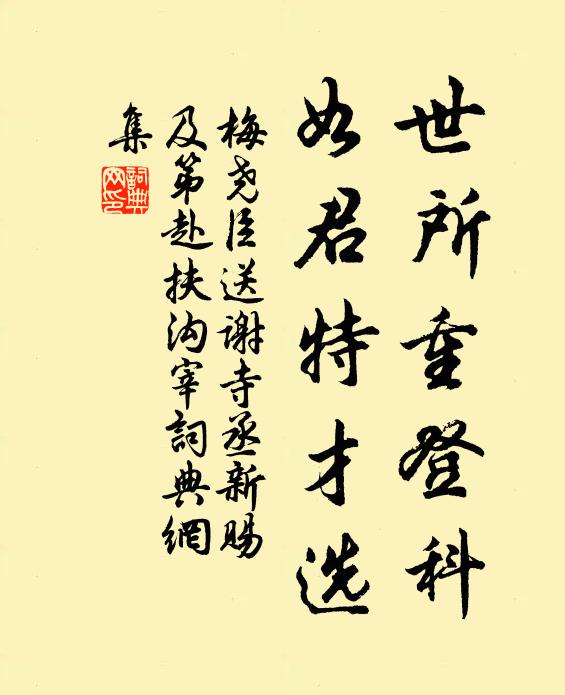 世所重登科
如君特才选
梅尧臣送谢寺丞新赐
及第赴扶沟宰詞典網
集
詞典
网印